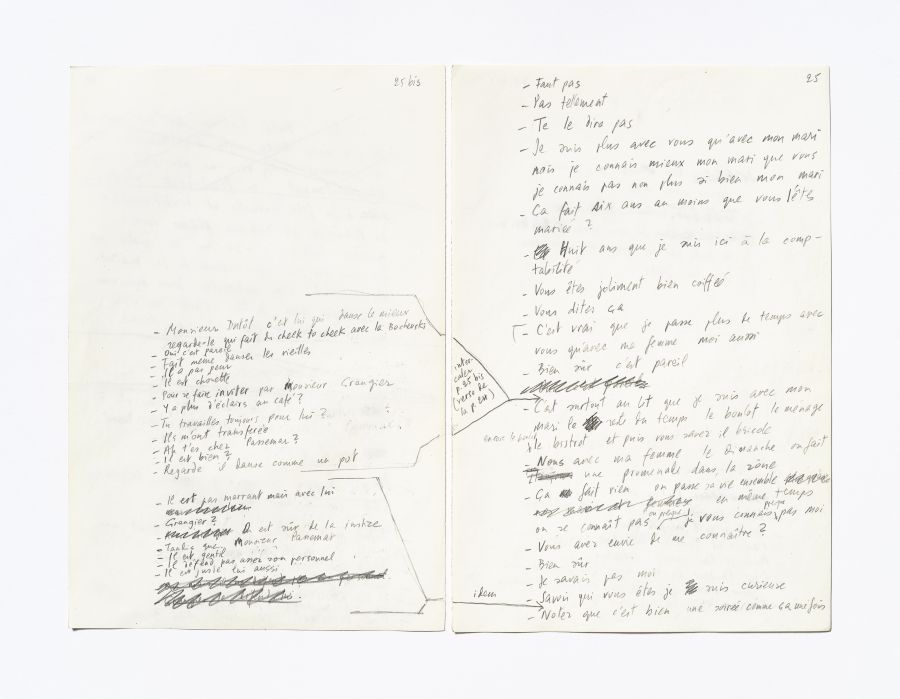 25 bis
- Monsieur Dutôt c'est lui qui danse le mieux
regarde-le qui fait du cheek to cheek avec la
- Oui c'est pareil
- Fait même danser les vieilles
- Il a pas peur
- Il est chouette
- Pour se faire inviter par Monsieur Grangier
- Y a plus d'éclairs au café ?
- Tu travailles toujours pour lui ?
- Ils m'ont transférée
- Ah t'es chez Passemar ?
- Il est bien ?
- Regarde il danse comme un pot
- Il est pas marrant mais avec lui
- Grangier ?
- est sûr de la justice
- Tandis que Monsieur Passemar
- Il est gentil
- Il défend pas assez son personnel
- Il est juste lui aussi
25
- Faut pas
- Pas tellement
- Te le dira pas
- Je suis plus avec vous qu'avec mon mari
mais je connais mieux mon mari que vous
je connais pas non plus si bien mon mari
- Ca fait six ans au moins que vous l'êtes
mariée ?
- Huit ans que je suis ici à la comp-
tabilité
- Vous êtes joliment bien coiffée
- Vous dites ça
- C'est vrai que je passe plus de temps avec
vous qu'avec ma femme moi aussi
- Bien sûr c'est pareil
inter-
caler
p. 25 bis
(verso de
la p. 24)
- C'est surtout au lit que je suis avec mon
mari le reste du temps le boulot le ménage
le bistrot et puis vous savez il bricole
- Nous avec ma femme le dimanche on fait
une promenade dans la zône
- Ca fait rien on passe sa vie ensemble
en même temps
on se connaît pas je vous connais pas moi
- Vous avez envie de me connaître ?
- Bien sûr
- Je savais pas moi
idem
- Savoir qui vous êtes je suis curieuse
- Notez que c'est bien une soirée comme ça une fois